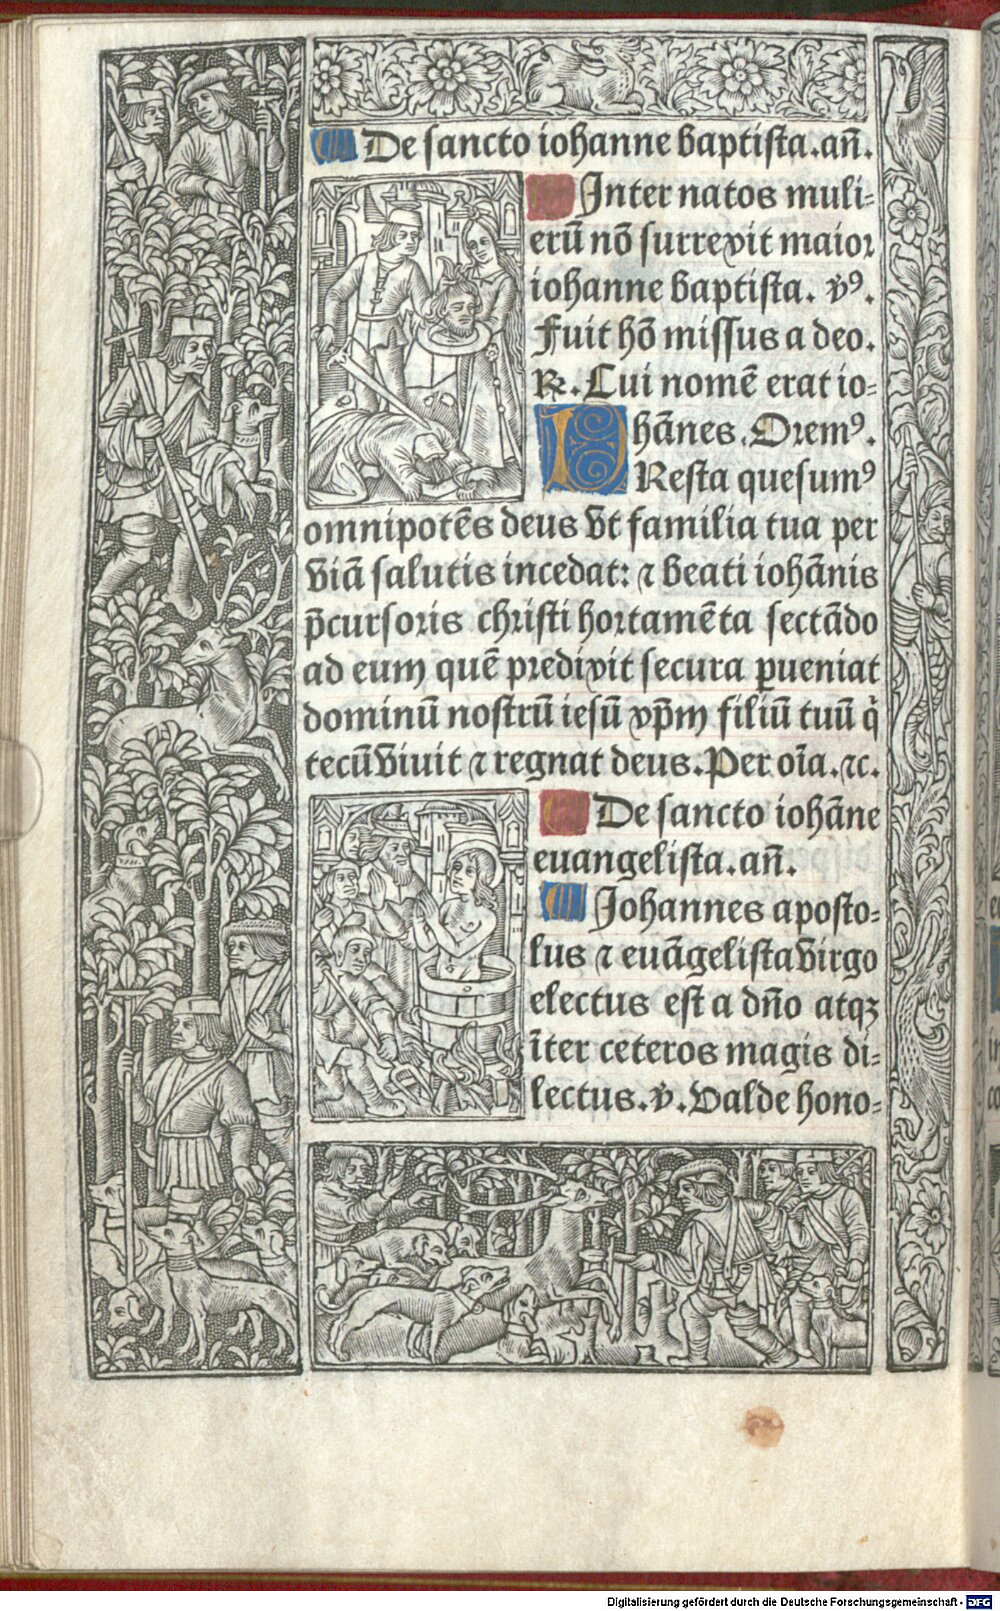 De sancto iohanne baptista.an̄.
Inter natos muli-
erū nō surrexit maior
iohanne baptista. v̕ꝰ.
Fuit hō missus a deo.
R̕. Cui nomē erat io-
hānes. Oremꝰ.
PResta quesumꝰ
omnipotēs deus vt familia tua per
viā salutis incedat: ⁊ beati iohānis
p̄cursoris christi hortamēta sectādo
ad eum quē predixit secura ꝑueniat
dominū nostrū iesū xp̄m filiū tuū q̄
tecū viuit ⁊ regnat deus. Per oīa. ⁊c.
De sancto iohāne
euangelista.an̄.
Johannes aposto-
lus ⁊ euāgelista virgo
electus est a dn̄o atqꝫ
īter ceteros magis di-
lectus. v̕. Valde hono-
Digitalisierung gefördert durch die Deutsche Forschungsgemeinschaft - DFG